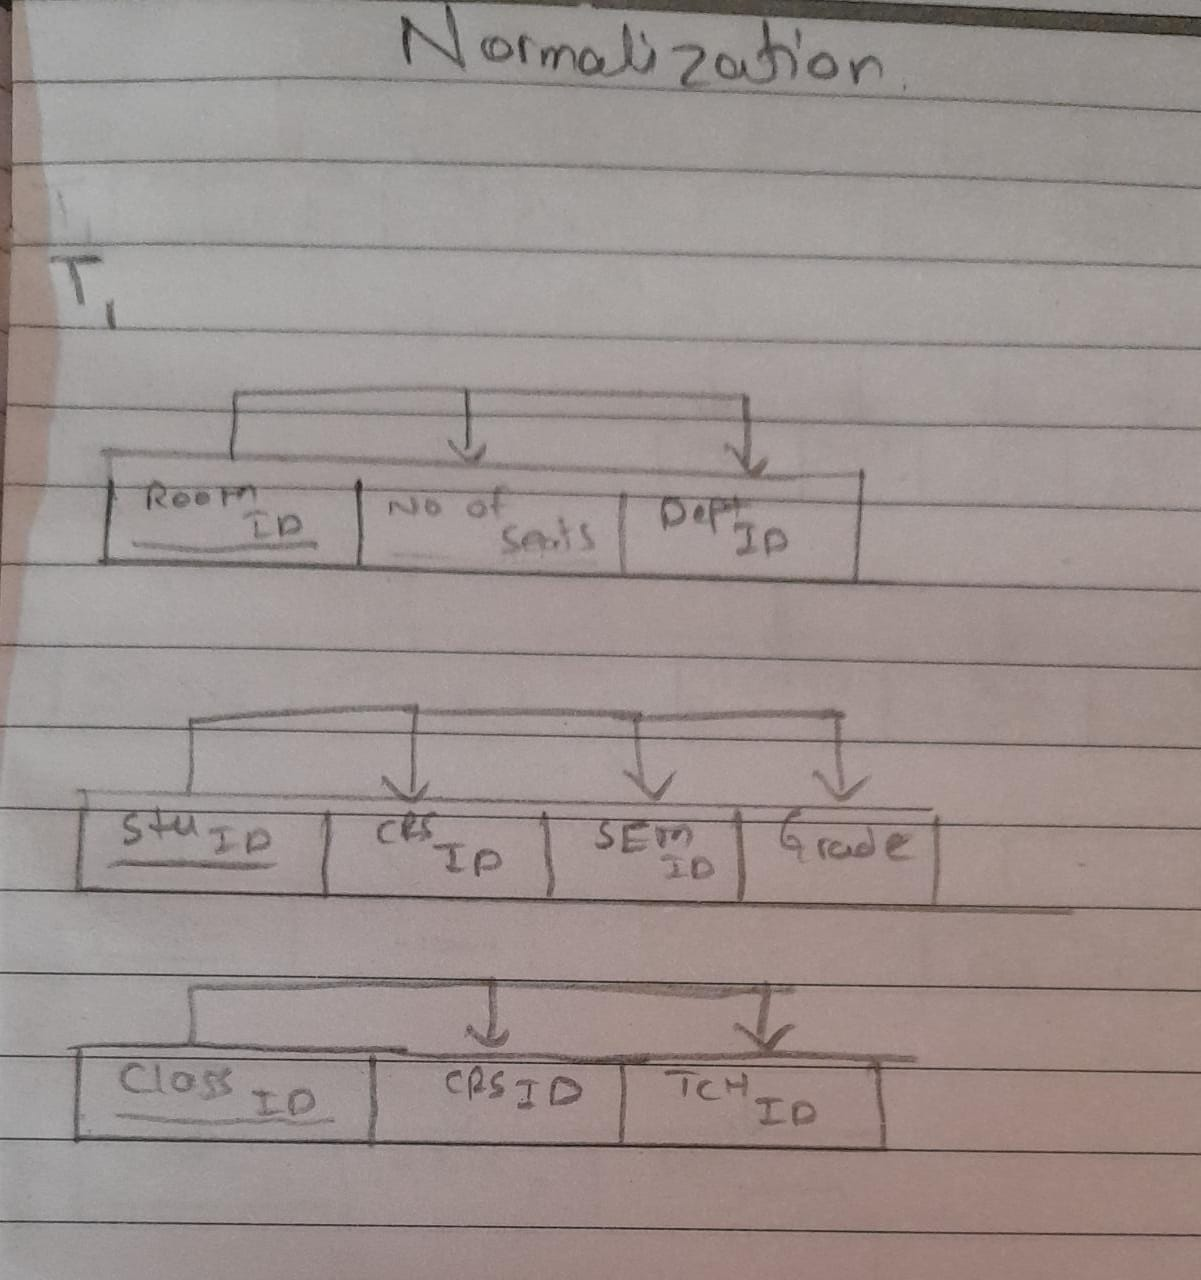 Normalization.
T1
Room ID No of seats Dept ID
Stu ID CRS ID SEM ID Grade
Class ID CRS ID TCH ID